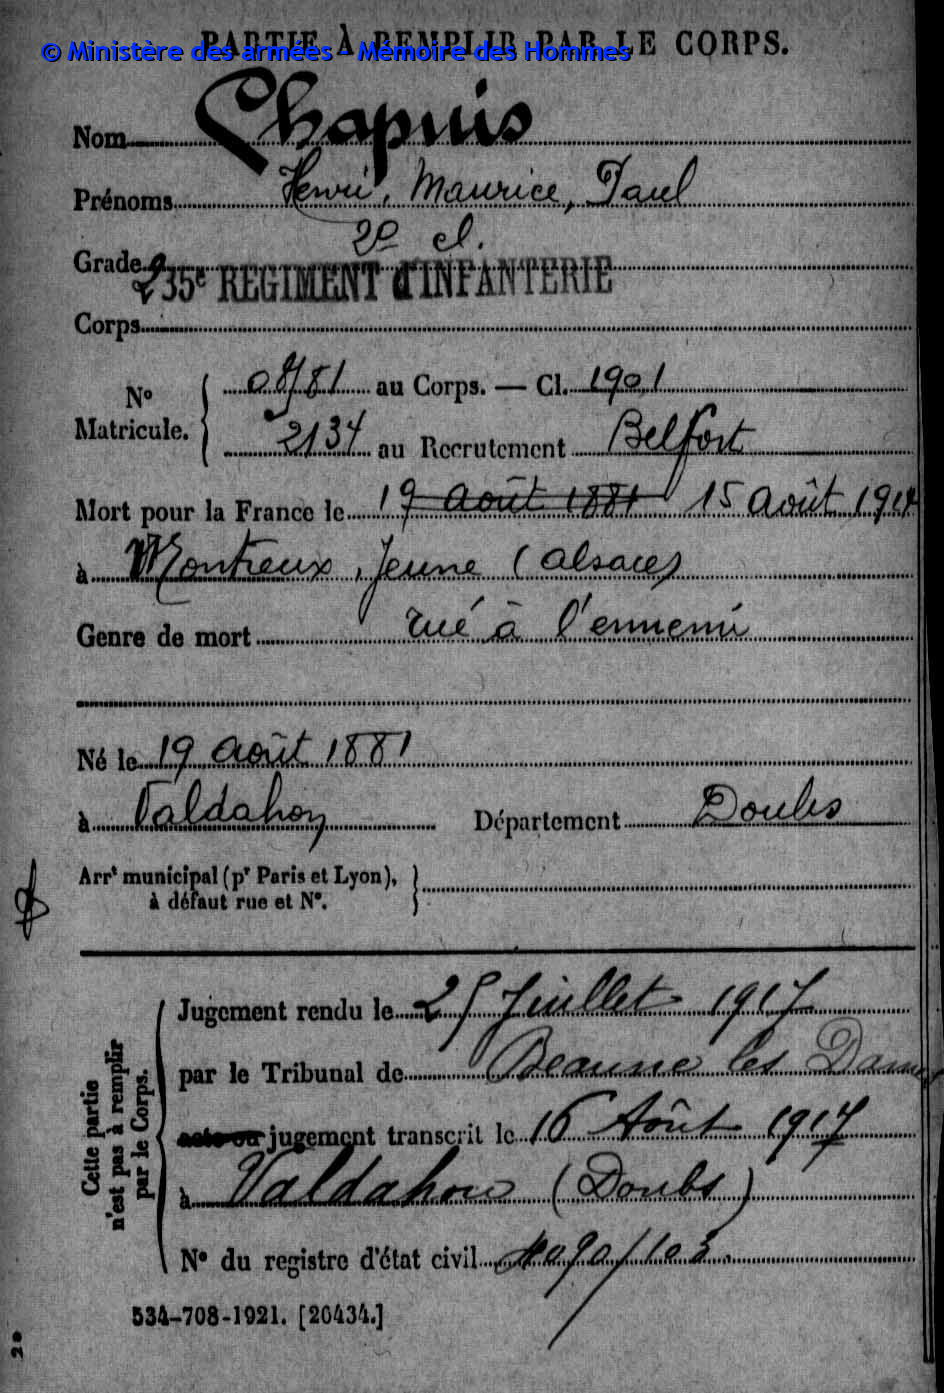 PARTIE À REMPLIR PAR LE CORPS.
© Ministère des armées - Mémoire des Hommes
Nom Chapuis
Prénoms Henri, Maurice, Paul
Grade 2e cl.
235e REGIMENT d'INFANTERIE
Corps
No Matricule. { 08781 au Corps. — Cl. 1901
2134 au Recrutement Belfort
Mort pour la France le 19 août 1881 15 août 1914
à Montreux, Jeune (alsace)
Genre de mort Tué à l'ennemi
Né le 19 août 1881
à Valdahon Département Doubs
Arrt municipal (pr Paris et Lyon),
à défaut rue et No.
Cette partie
n'est pas à remplir
par le Corps.
Jugement rendu le 25 Juillet 1917
par le Tribunal de Beaume les Dames
acte ou jugement transcrit le 16 Août 1917
à Valdahon (Doubs)
No du registre d'état civil
534-708-1921. [26434.]